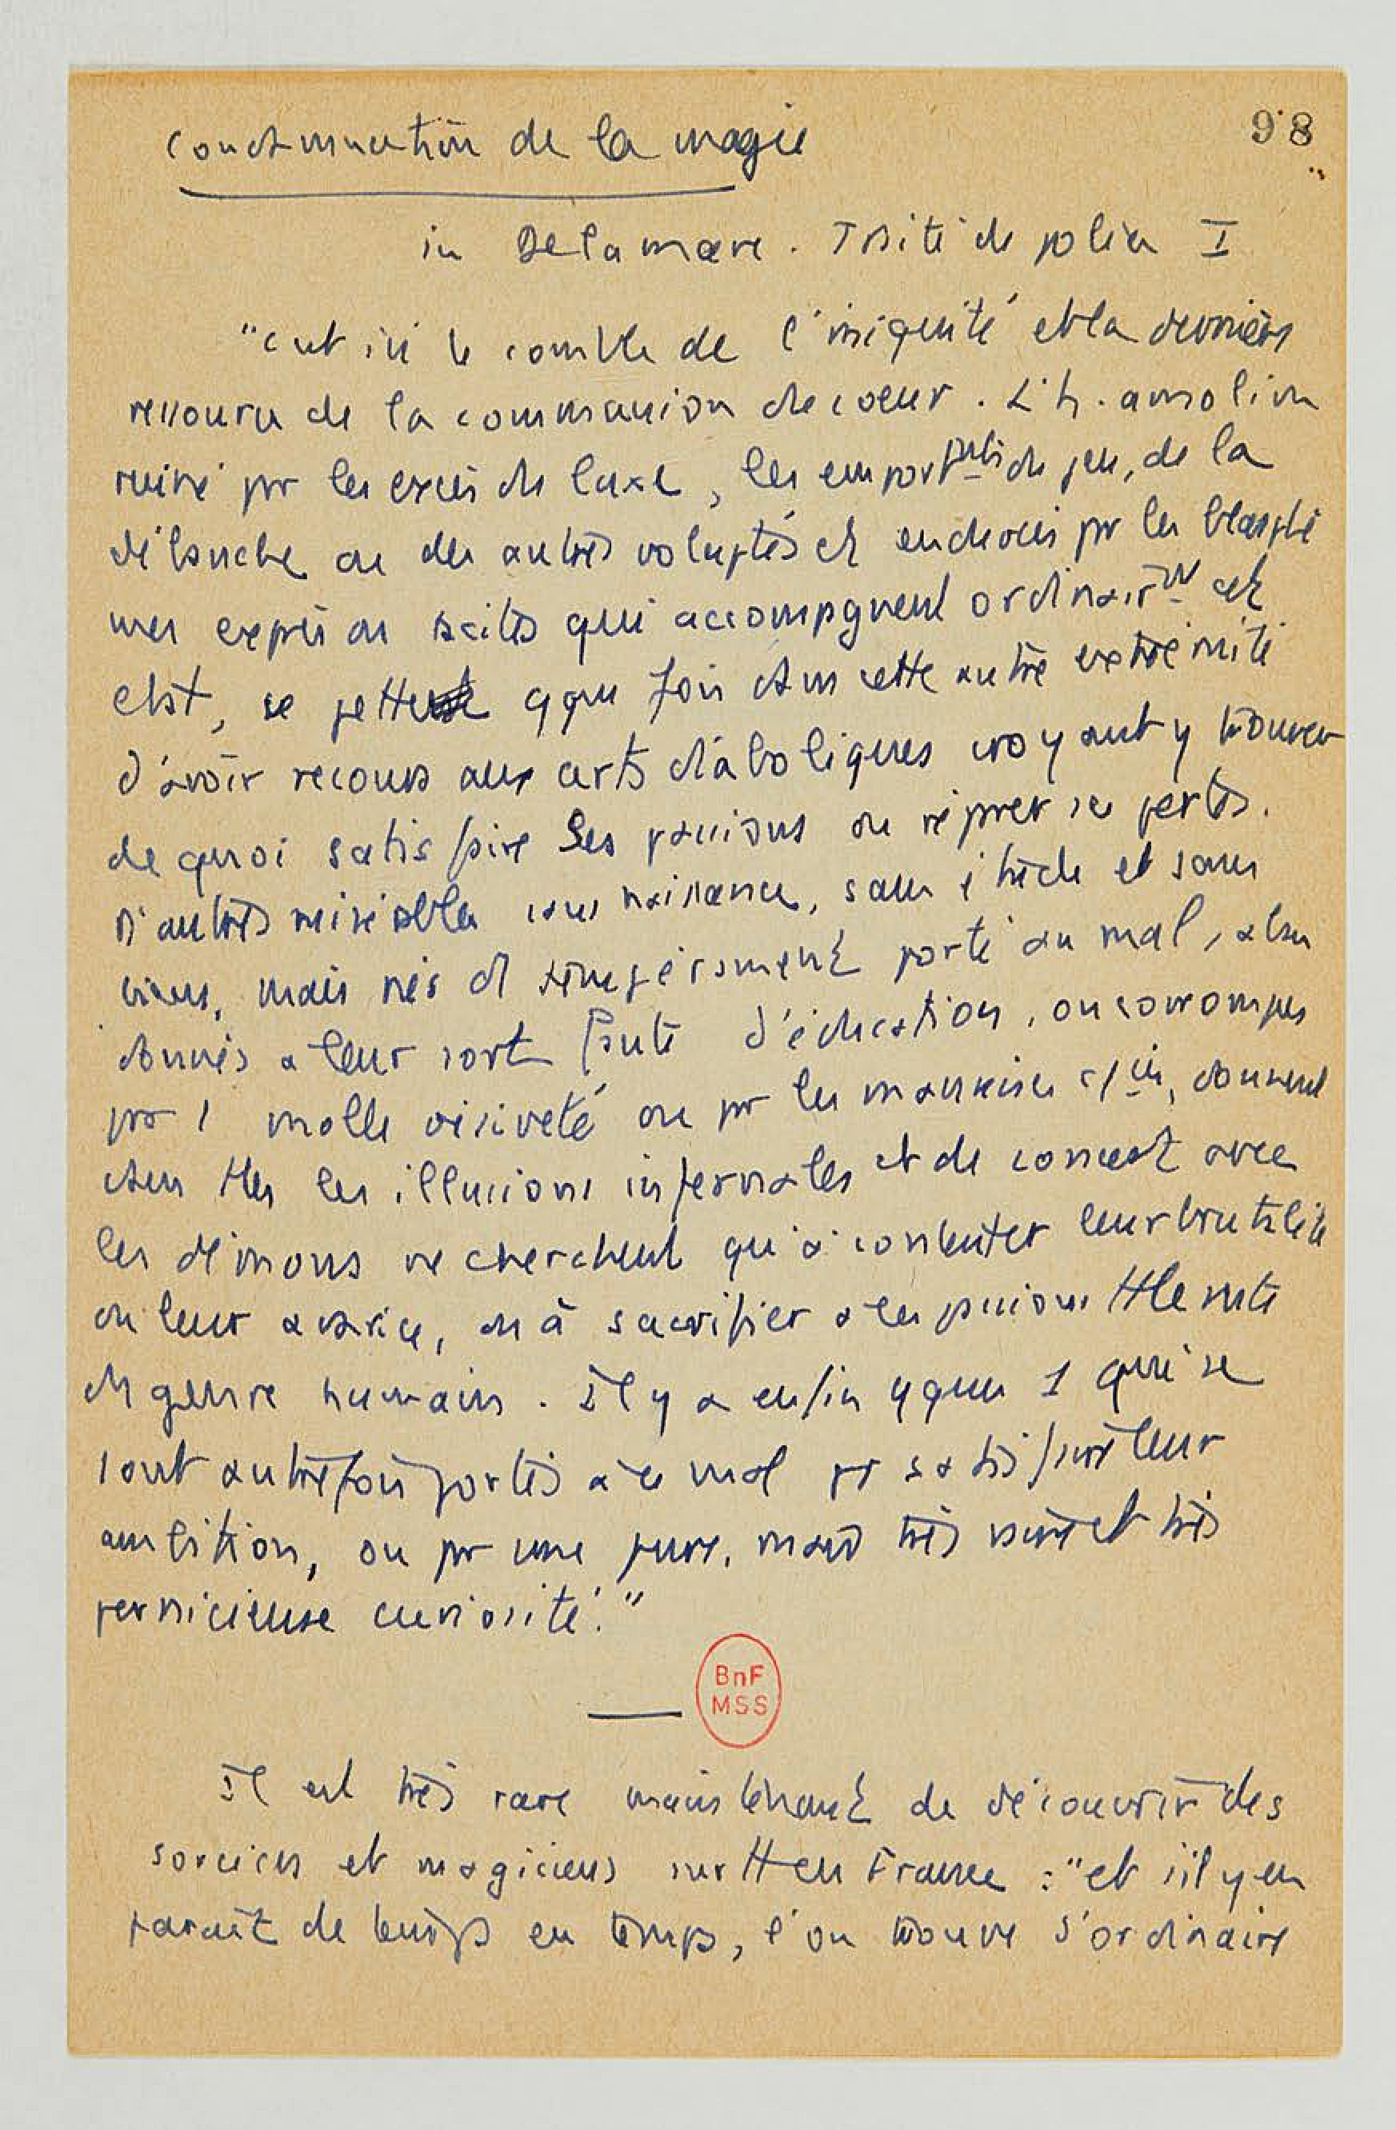 Condamnation de la magie
98
in Delamare. Traité de police I
"c'est ici le comble de l'iniquité et la dernière
ressource de la corruption du coeur. L'h. ambitieux
ruiné pr les excès du luxe, les emportmts du jeu, de la
débauche ou des autres voluptés et endurcis pr les blasphè
mes exprès ou tacites qui accompagnent ordinairmt cet
état, se jette qque fois dans cette autre extrémité
d'avoir recours aux arts diaboliques croyant y trouver
de quoi satisfaire ses passions ou réparer ses pertes.
D'autres misérables sans naissance, sans étude et sans
biens, mais nés d tempérament porté au mal, aban
donnés à leur sort faute d'éducation, ou corrompus
par 1 molle oisiveté ou pr les mauvaises cies, donnent
dans ttes les illusions infernales et de concert avec
les démons ne cherchent qu'à contenter leur brutalité
ou leur avarice, ou à sacrifier à les passions tt le reste
du genre humain. Il y a enfin qques 1 qui se
sont autrefois portés à ce mal pr satisfaire leur
ambition, ou pr une pure, mais très vaine et très
pernicieuse curiosité."
BnF
MSS
Il est très rare maintenant de découvrir des
sorciers et magiciens surtt en France : "et s'il y en
paraît de temps en temps, l'on trouve d'ordinaire